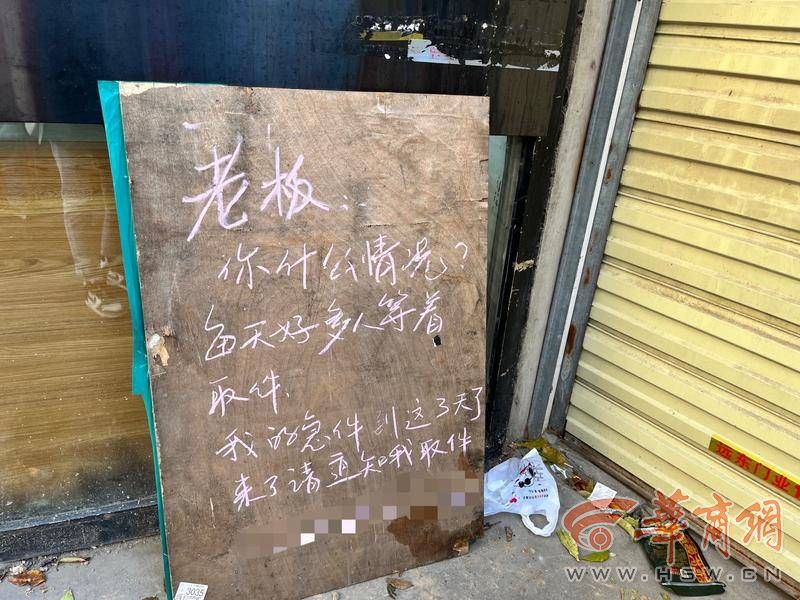 老板:
你什么情况?
每天好多人等着
取件.
我的急件到这3天了
来了请通知我取件
3035
远东门业
華商網
WWW.HSW.CN